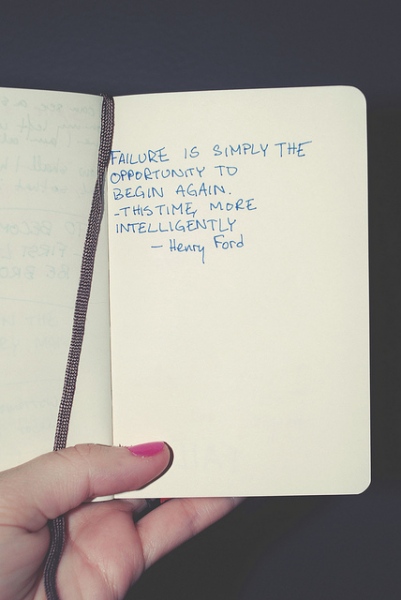 FAILURE IS SIMPLY THE
OPPORTUNITY TO
BEGIN AGAIN.
-THIS TIME, MORE
INTELLIGENTLY
— Henry Ford